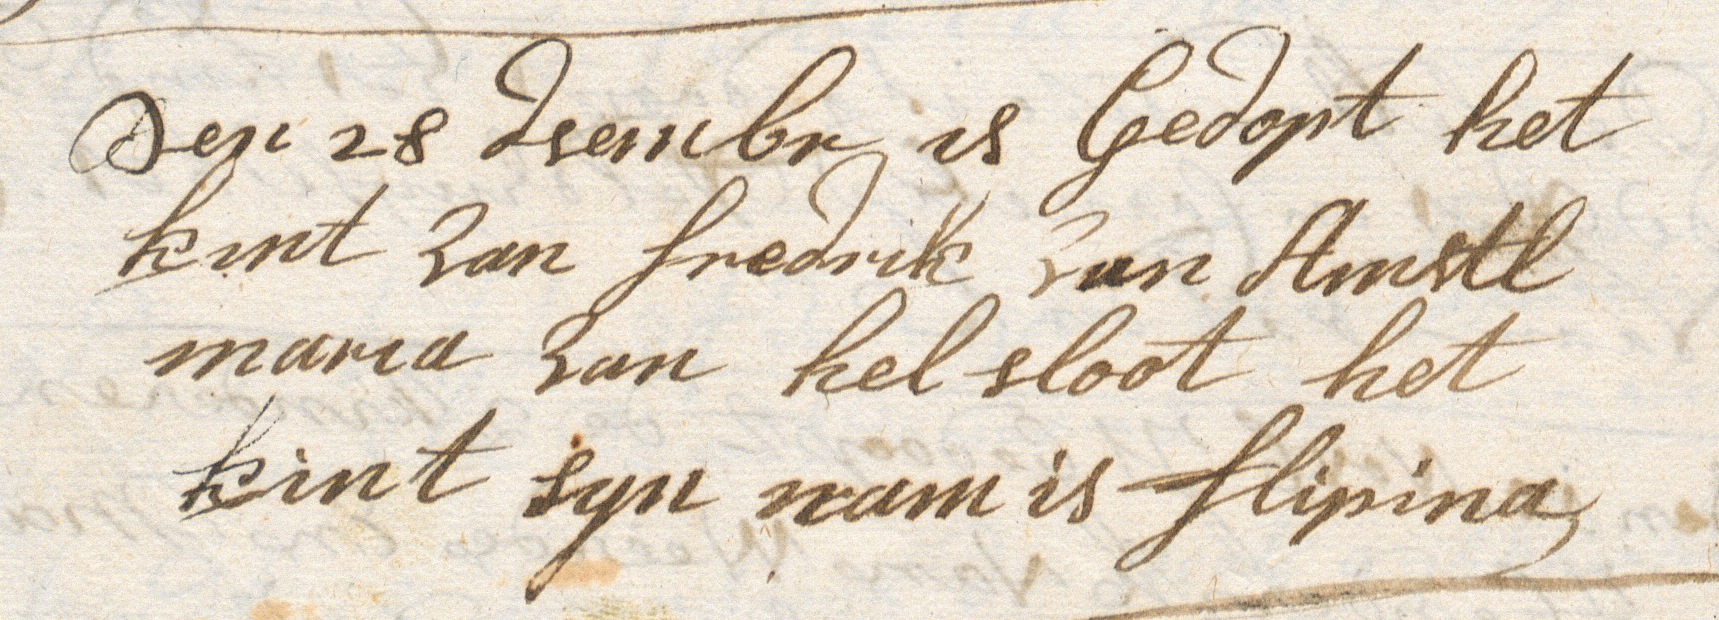 Den 28 dsembr is Gedopt het
kint van fredrik van Amstl
maria van helsloot het
kint syn nam is flipina